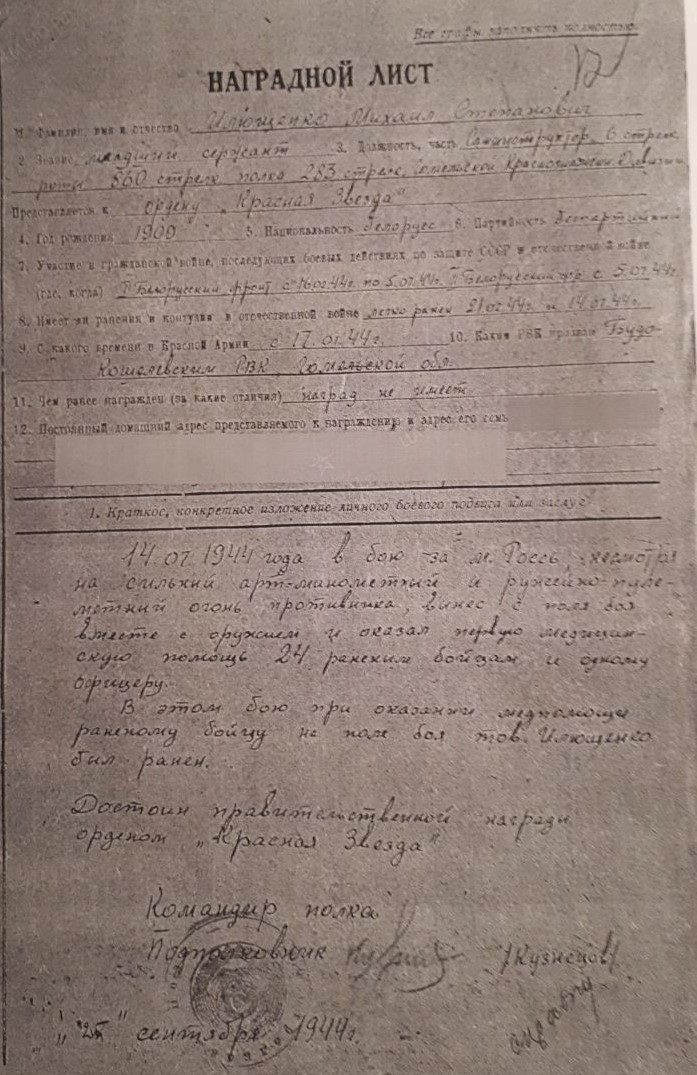 Все графы заполнять полностью.
НАГРАДНОЙ ЛИСТ
1. Фамилия, имя и отчество Илющенко Михаил Степанович
2. Звание младший сержант 3. Должность, часть Санинструктор 6 стрелк.
роты 860 стрелк. полка 283 стрелк. Гомельской Краснознаменн. Дивизии
Представляется к ордену „Красная Звезда"
4. Год рождения 1909 5. Национальность белорус 6. Партийность беспартийный
7. Участие в гражданской войне, последующих боевых действиях по защите СССР и отечественной войне
(где, когда) Белорусский фронт с 16.01.44г. по 5.07.44г. II Белорусский фр. с 5.07.44г.
8. Имеет ли ранения и контузии в отечественной войне легко ранен 21.02.44г. и 14.07.44г.
9. С какого времени в Красной Армии с 17.01.44г. 10. Каким РВК призван Будо-
Кошелевским РВК, Гомельской обл.
11. Чем ранее награжден (за какие отличия) наград не имеет
12. Постоянный домашний адрес представляемого к награждению и адрес его семь
1. Краткое, конкретное изложение личного боевого подвига или заслуг
14.07.1944 года в бою за м. Россь, несмотря
на сильный арт-минометный и ружейно-пуле-
метный огонь противника, вынес с поля боя
вместе с оружием и оказал первую медицин-
скую помощь 24 раненым бойцам и одному
офицеру.
В этом бою при оказании медпомощи
раненому бойцу на поле боя тов. Илющенко
был ранен.
Достоин правительственной награды
орденом „Красная Звезда"
Командир полка
Подполковник /Кузнецов/
сентября 1944г.